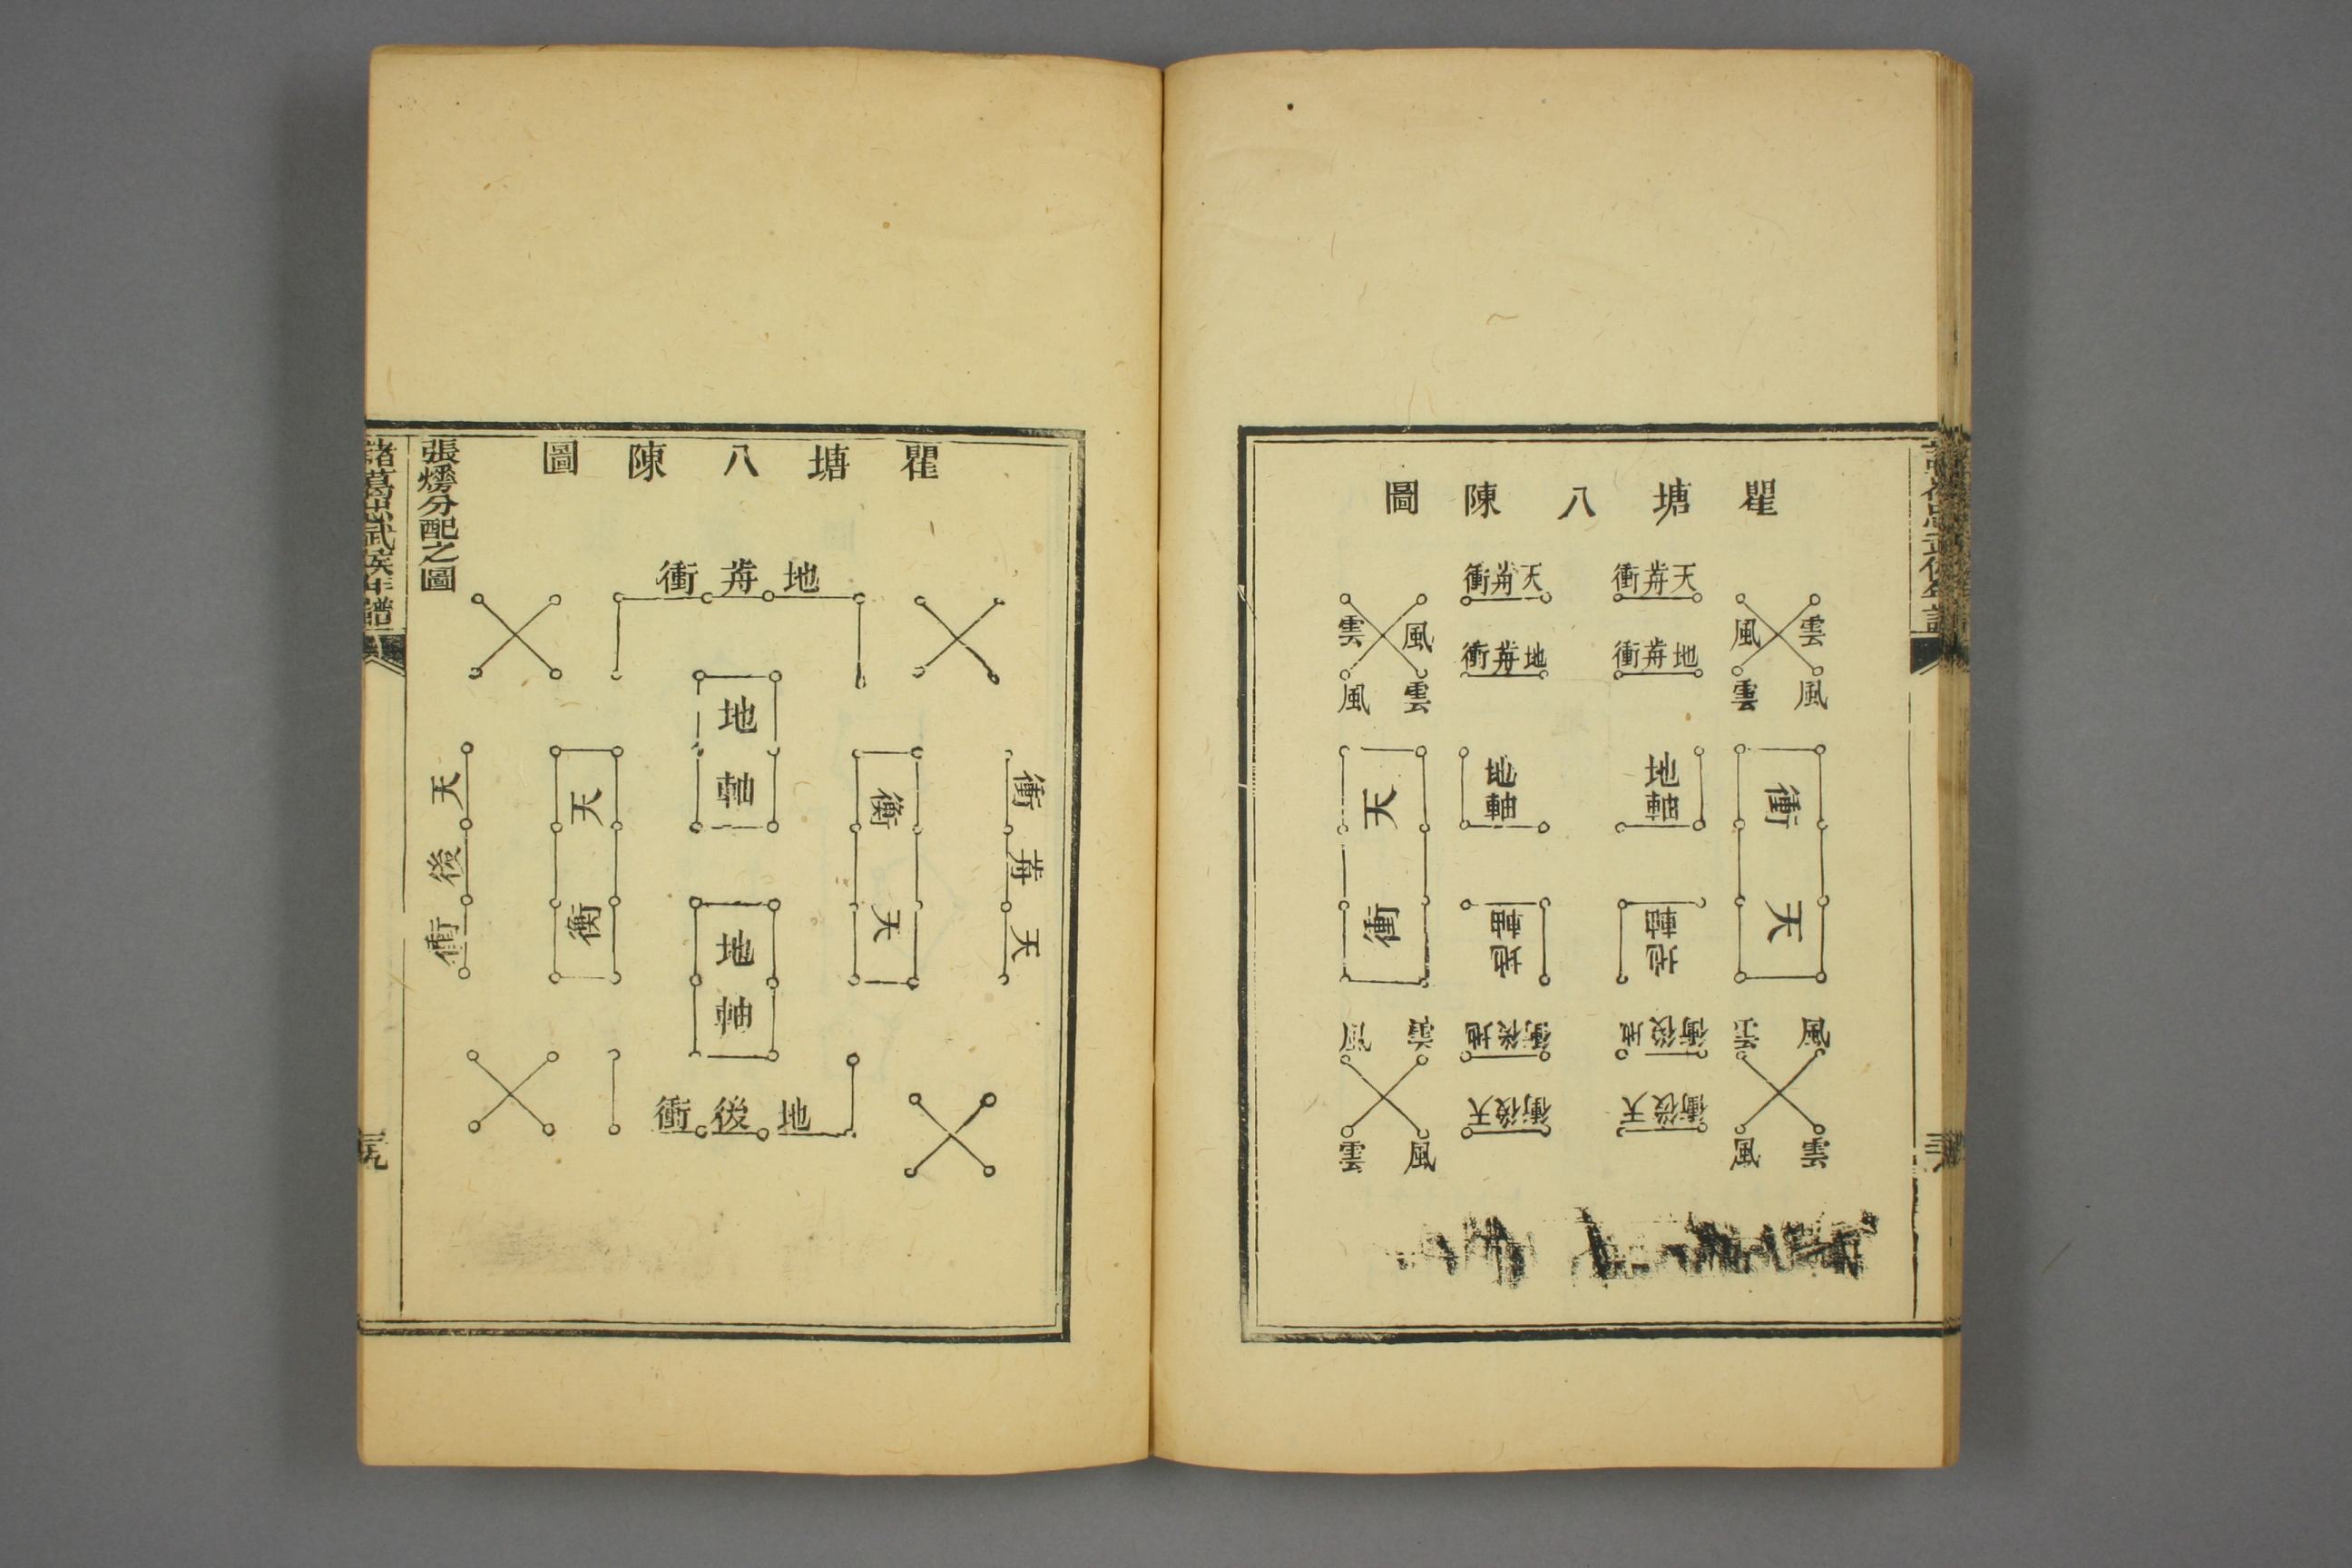 瞿塘八陳圖
天前衝 天前衝
地前衝 地前衝
雲 風 風 雲
風 雲 雲 風
地軸 地軸
天衝 天衝
地軸 地軸
地後衝 地後衝
風 雲 雲 風
天後衝 天後衝
雲 風 風 雲
瞿塘八陳圖
地前衝
地軸
天前衝
天衡
天衡
天後衝
地軸
地後衝
張燧分配之圖
諸葛忠武侯年譜